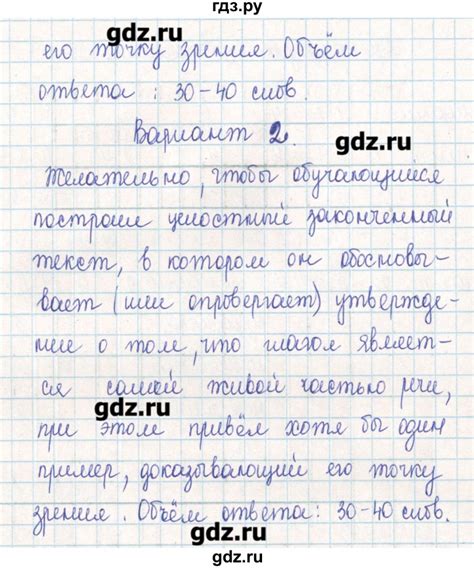 гдз.ру
gdz.ru
его точку зрения. Объём
ответа : 30-40 слов.
gdz.ru
Вариант 2.
gdz.ru
Желательно, чтобы обучающийся
построил целостный законченный
gdz.ru
текст, в котором он обосновы-
вает (или опровергает) утвержде-
gdz.ru
ние о том, что глагол являет-
ся самой живой частью речи,
gdz.ru
при этом привёл хотя бы один
gdz.ru
пример, доказывающий его точку
зрения. Объём ответа: 30-40 слов.
gdz.ru
gdz.ru